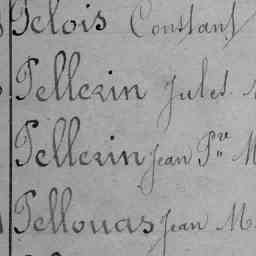 Pelois Constant
Pellerin Jules
Pellerin Jean Pre M
Pellouas Jean M